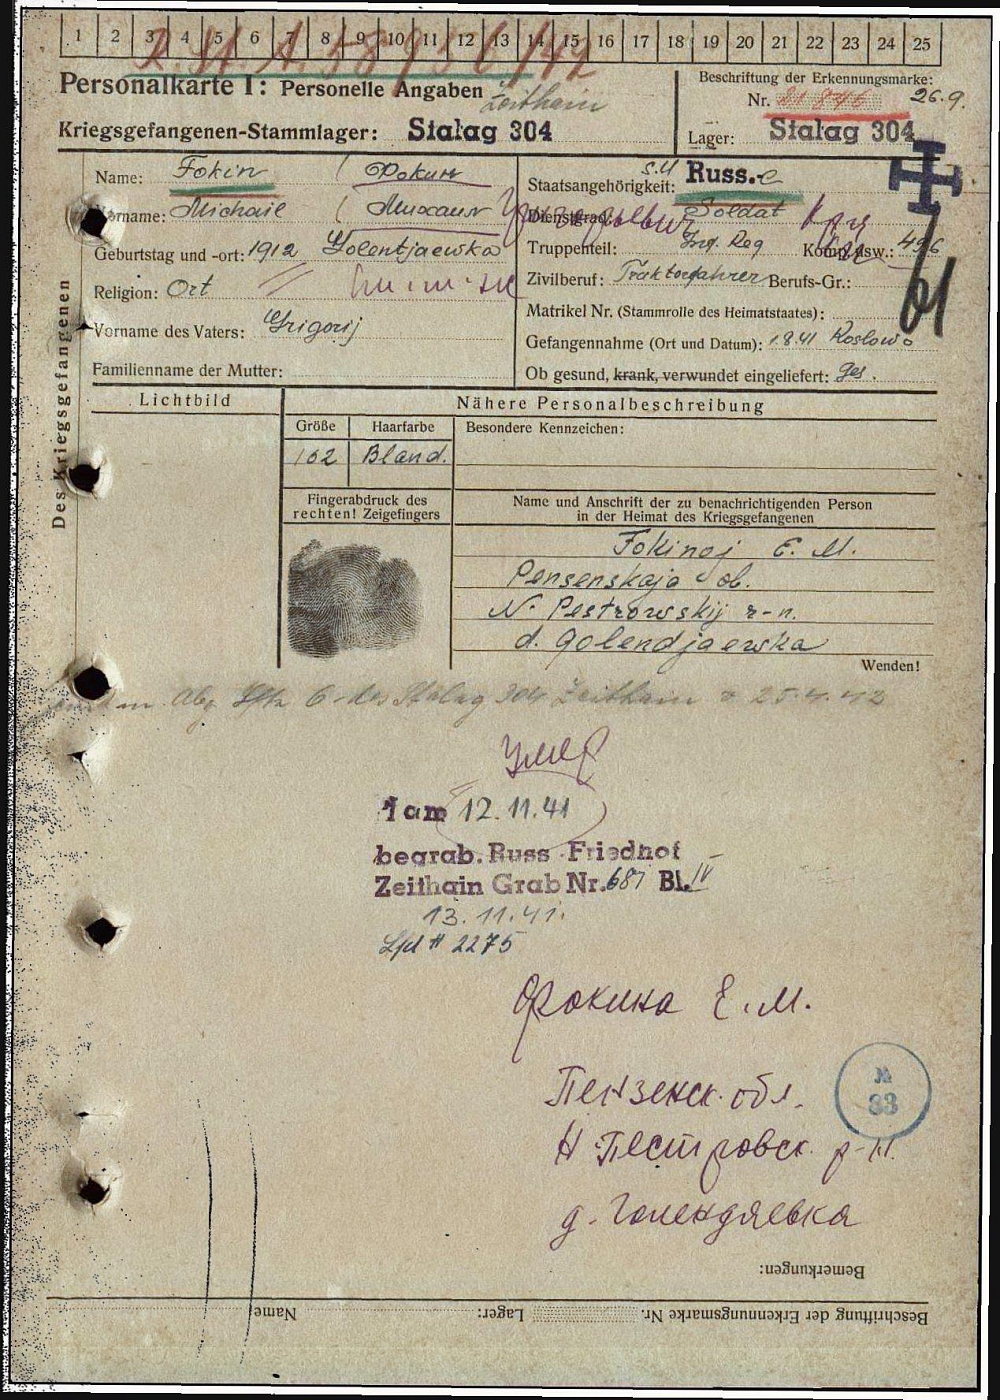 1 2 3 4 5 6 7 8 9 10 11 12 13 14 15 16 17 18 19 20 21 22 23 24 25
Personalkarte I: Personelle Angaben
Zeithain
Beschriftung der Erkennungsmarke:
Nr. 26.9.
Kriegsgefangenen-Stammlager: Stalag 304
Lager: Stalag 304
Des Kriegsgefangenen
Name: Fokin (Фокин
Vorname: Michail (Михаил
Geburtstag und -ort: 1912 Golentjaewka
Religion: Ort
Vorname des Vaters: Grigorij
Familienname der Mutter:
Staatsangehörigkeit: S.U Russ.
Dienstgrad: Soldat
Truppenteil: Inf. Reg Komp. usw.: 496
Zivilberuf: Traktorfahrer Berufs-Gr.:
Matrikel Nr. (Stammrolle des Heimatstaates):
Gefangennahme (Ort und Datum): 1.8.41 Roslowo
Ob gesund, krank, verwundet eingeliefert: ges.
Lichtbild
Nähere Personalbeschreibung
Größe Haarfarbe Besondere Kennzeichen:
162 Bland.
Fingerabdruck des
rechten! Zeigefingers
Name und Anschrift der zu benachrichtigenden Person
in der Heimat des Kriegsgefangenen
Fokinoj E. M.
Pensenskaja ob.
N. Pestrowskij r-n.
d. Golendjaewka
Wenden!
Abg. 6 des Stalag 304 Zeithain 25.4.42
умер
am 12.11.41
begrab. Russ Friedhof
Zeithain Grab Nr. 687 Bl. IV
13.11.41.
Lfd # 2275
Фокина Е. М.
Пензенск. обл.
№
33
Н. Пестровск. р-н.
д. Голендяевка
Bemerkungen:
Beschriftung der Erkennungsmarke Nr. Lager: Name